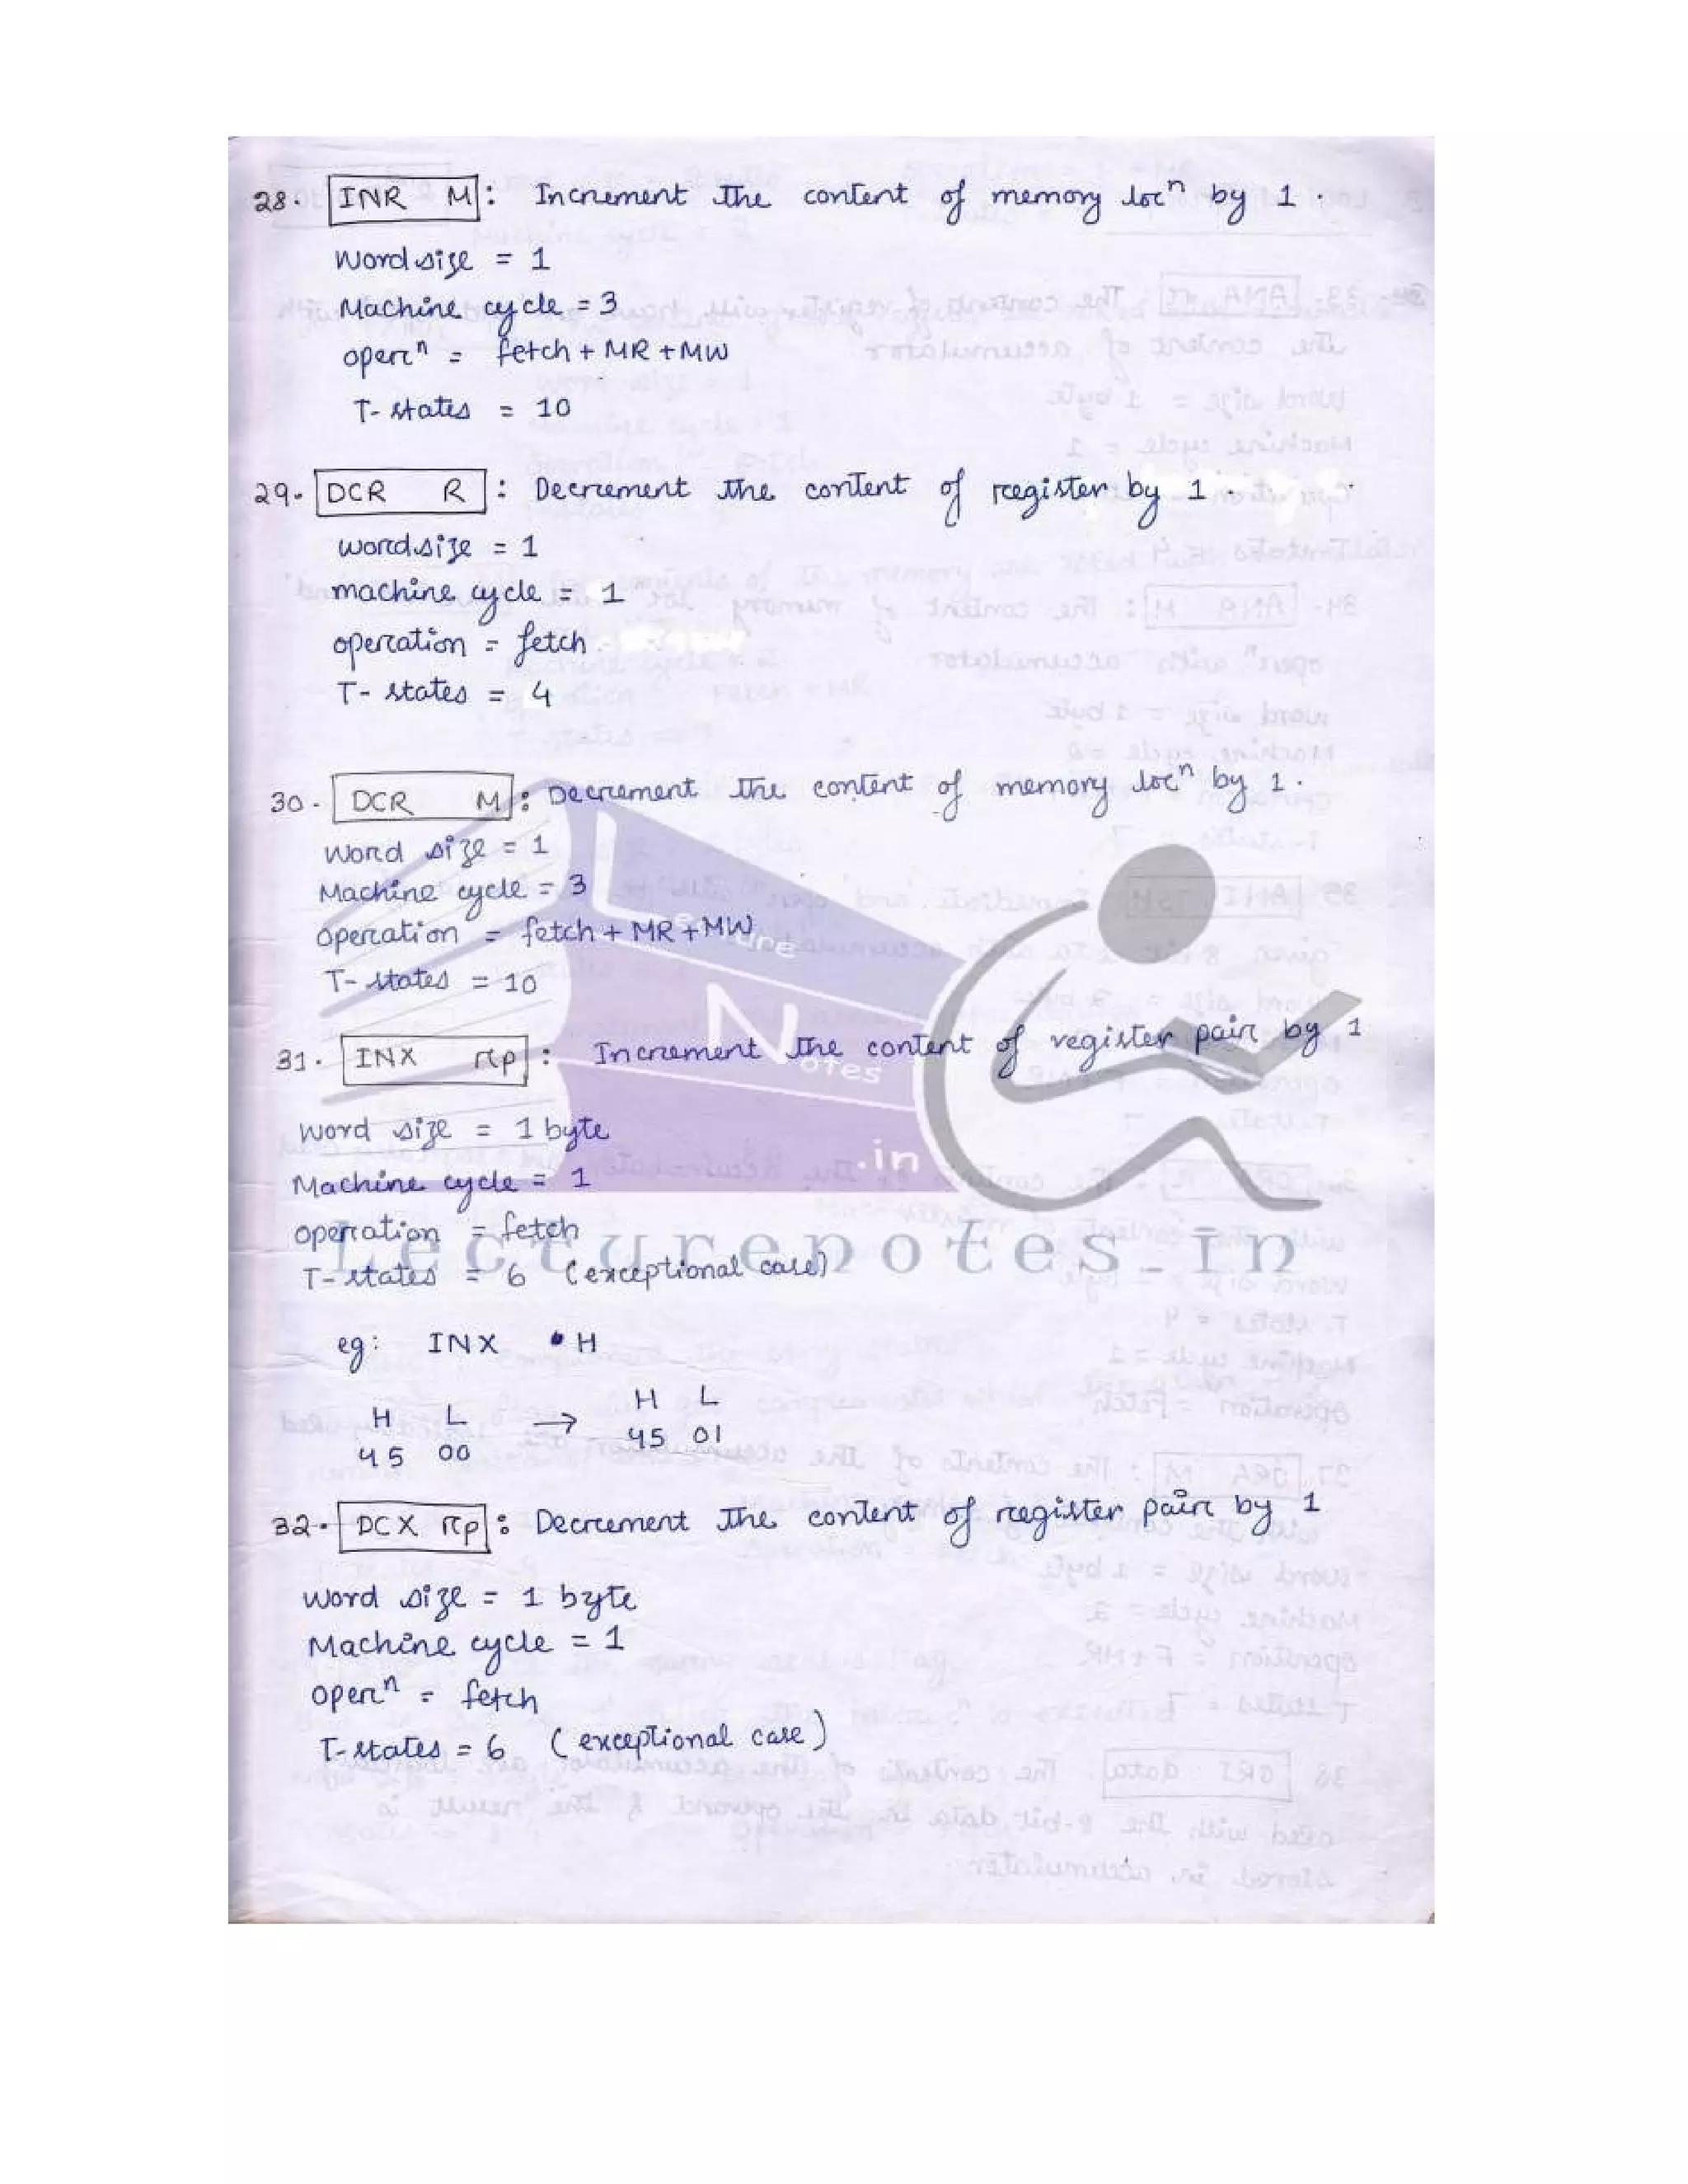 28. INR M : Increment the content of memory locⁿ by 1.
Word size = 1
Machine cycle = 3
operⁿ = fetch + MR + MW
T-states = 10
29. DCR R : Decrement the content of register by 1.
word size = 1
machine cycle = 1
operation = fetch
T-states = 4
30. DCR M : Decrement the content of memory locⁿ by 1.
Word size = 1
Machine cycle = 3
operation = fetch + MR + MW
T-states = 10
31. INX rp : Increment the content of register pair by 1
Word size = 1 byte
Machine cycle = 1
operation = fetch
T-states = 6 (exceptional case)
eg: INX H
H L → H L
45 00 45 01
32. DCX rp : Decrement the content of register pair by 1
Word size = 1 byte
Machine cycle = 1
operⁿ = fetch
T-states = 6 (exceptional case)
Lecture
Notes
.in
Lecturenotes.in